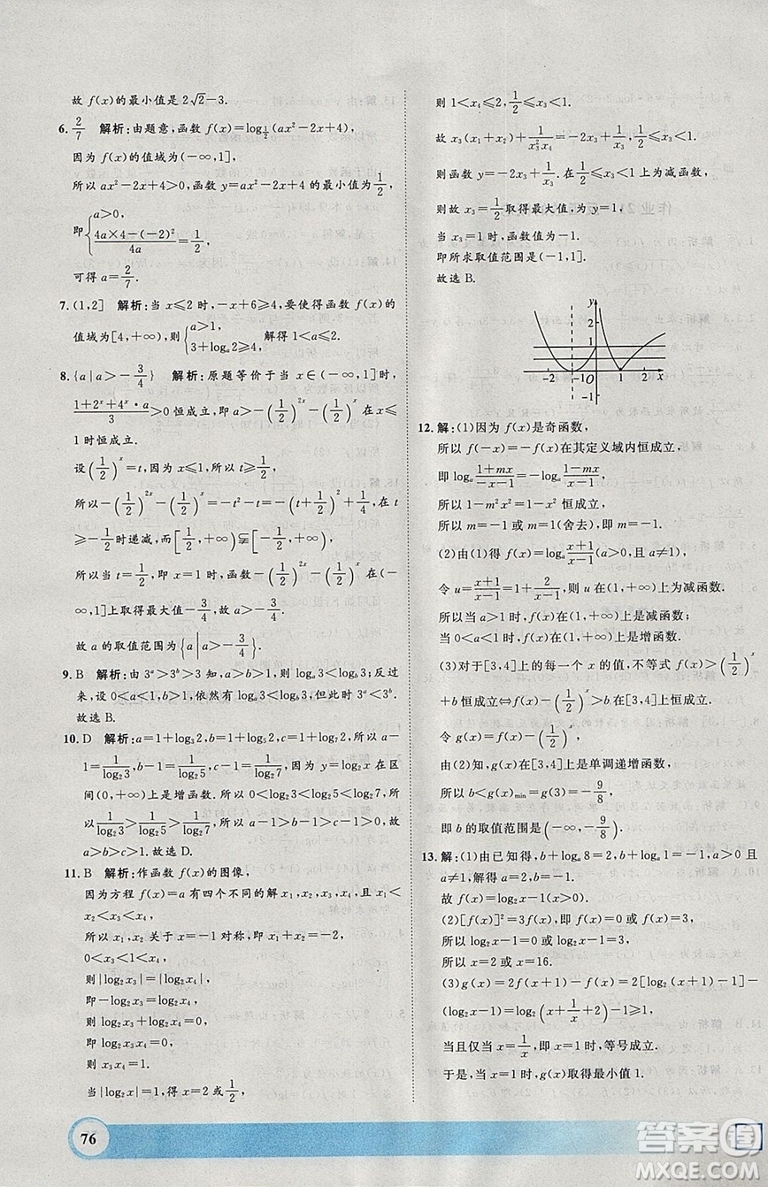 故 f(x)的最小值是 2√2－3.
6. 2/7　解析:由题意,函数 f(x)＝log_{1/2}(ax²－2x＋4),
因为 f(x)的值域为(－∞,1],
所以 ax²－2x＋4>0,函数 y＝ax²－2x＋4 的最小值为 1/2,
即{a>0, (4a×4－(－2)²)/(4a)＝1/2,
可得 a＝2/7.
7. (1,2]　解析:当 x≤2 时,－x＋6≥4,要使得函数 f(x)的
值域为[4,＋∞),则{a>1, 3＋log_a 2≥4, 解得 1<a≤2.
8. {a|a>－3/4}　解析:原题等价于当 x∈(－∞,1]时,
(1＋2^x＋4^x·a)/3>0 恒成立,即 a>－(1/2)^{2x}－(1/2)^x 在 x≤
1 时恒成立.
设(1/2)^x＝t,
所以 y＝－(1/2)^{2x}－(1/2)^x＝－t²－t＝－(t＋1/2)²＋1/4 在 t
≥－1/2 时递减,而[1/2,＋∞)⫋[－1/2,＋∞),
所以当 t＝1/2,即 x＝1 时,函数－(1/2)^{2x}－(1/2)^x 在(－
∞,1]上取得最大值－3/4,
故 a 的取值范围为{a|a>－3/4}.
9. B　解析:由 3^a>3^b>3 知,a>b>1,所以 log_a 3<log_b 3;反过
来,设 0<a<1,b>1,依然有 log_a 3<log_b 3.
故选 B.
10. D　解析:a＝1＋log₃2,b＝1＋log₅2,c＝1＋log₇2,所以 a
－1＝1/log₂3,b－1＝1/log₂5,c－1＝1/log₂7,因为 y＝log₂x 在区
间(0,＋∞)上是增函数,所以 0<log₂3<log₂5<log₂7,所以
1/log₂3>1/log₂5>1/log₂7,所以 a－1>b－1>c－1>0,所以
a>b>c.故选 D.
11. B　解析:作函数 f(x)的图像,
因为方程 f(x)＝a 有四个不同的解 x₁,x₂,x₃,x₄,且 x₁<
x₂<x₃<x₄,
所以 x₁,x₂ 关于 x＝－1 对称,即 x₁＋x₂＝－2,
0<x₃<1<x₄,
则|log₂x₃|＝|log₂x₄|,
即－log₂x₃＝log₂x₄,
则 log₂x₃＋log₂x₄＝0,
即 log₂x₃x₄＝0,
则 x₃x₄＝1.
当|log₂x|＝1,得 x＝2 或 1/2,
则 1<x₄≤2,1/2≤x₃<1.
故 x₃(x₁＋x₂)＋1/(x₃²x₄)＝－2x₃＋1/x₃,1/2≤x₃<1.
则函数 y＝－2x₃＋1/x₃,在 1/2≤x₃<1 上为减函数,
则故 x₃＝1/2取得最大值,为 y＝1,
当 x₃＝1 时,函数值为－1.
即所求取值范围是(－1,1].
故选 B.
y
2
1
－2 －1 O 1 2 x
－1
12. 解:(1)因为 f(x)是奇函数,
所以 f(－x)＝－f(x)在其定义域内恒成立,
即 log_a (1＋mx)/(－x－1)＝－log_a (1－mx)/(x－1),
所以 1－m²x²＝1－x² 恒成立,
所以 m＝－1 或 m＝1(舍去),即 m＝－1.
(2)由(1)得 f(x)＝log_a (x＋1)/(x－1)(a>0,且 a≠1),
令 u＝(x＋1)/(x－1)＝1＋2/(x－1),则 u 在(1,＋∞)上为减函数,
所以当 a>1 时,f(x)在(1,＋∞)上是减函数,
当 0<a<1 时,f(x)在(1,＋∞)上是增函数.
(3)对于[3,4]上的每一个 x 的值,不等式 f(x)>(1/2)^x
＋b 恒成立⇔f(x)－(1/2)^x>b 在[3,4]上恒成立.
令 g(x)＝f(x)－(1/2)^x,
由(2)知,g(x)在[3,4]上是单调递增函数,
所以 b<g(x)_min＝g(3)＝－9/8,
即 b 的取值范围是(－∞,－9/8).
13. 解:(1)由已知得,b＋log_a 8＝2,b＋log_a 1＝－1(a>0 且
a≠1),从而得 a＝2,b＝－1,
故 f(x)＝log₂x－1(x>0).
(2)[f(x)]²＝3f(x),即 f(x)＝0 或 f(x)＝3,
所以 log₂x－1＝0 或 log₂x－1＝3,
所以 x＝2 或 x＝16.
(3)g(x)＝2f(x＋1)－f(x)＝2[log₂(x＋1)－1]－
(log₂x－1)＝log₂(x＋1/x＋2)－1≥1,
当且仅当 x＝1/x,即 x＝1 时,等号成立.
于是,当 x＝1 时,g(x)取得最小值 1.
76
答案圈
MXQE.COM